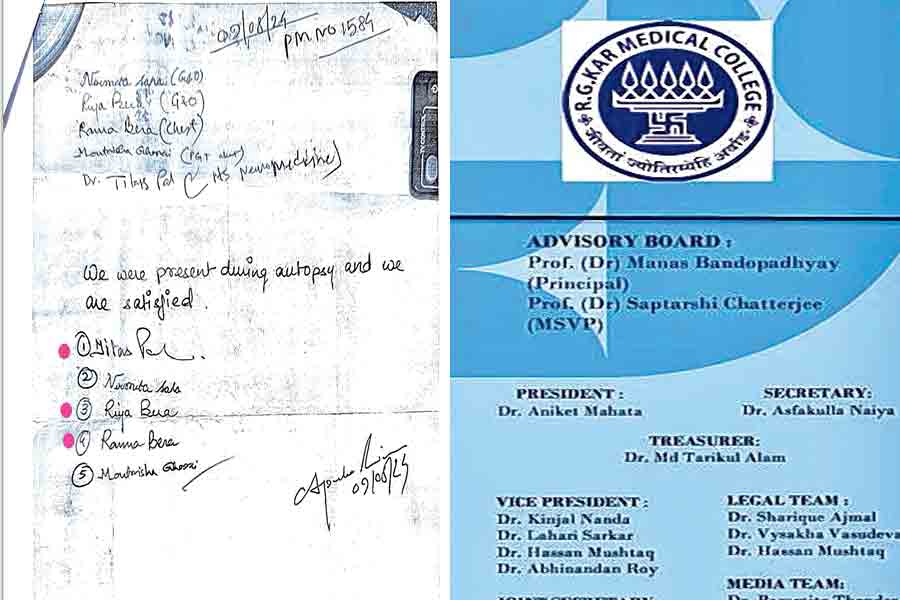 09/08/24
P.M. NO 1584
Nirmita Saha (G&O)
Riya Bera (G&O)
Rama Bera (Chest)
Moutrisha Ghosai (PGT
Dr. Titas Pal (MS Neuro Medicine)
We were present during autopsy and we
are satisfied.
① Titas Pal
② Nirmita Saha
③ Riya Bera
④ Rama Bera
⑤ Moutrisha Ghosai
09/08/24
R.G.KAR MEDICAL COLLEGE
ADVISORY BOARD :
Prof. (Dr) Manas Bandopadhyay
(Principal)
Prof. (Dr) Saptarshi Chatterjee
(MSVP)
PRESIDENT :
Dr. Aniket Mahata
SECRETARY:
Dr. Asfakulla Naiya
TREASURER:
Dr. Md Tarikul Alam
VICE PRESIDENT :
Dr. Kinjal Nanda
Dr. Lahari Sarkar
Dr. Hassan Mushtaq
Dr. Abhinandan Roy
LEGAL TEAM :
Dr. Sharique Ajmal
Dr. Vysakha Vasudeva
Dr. Hassan Mushtaq
MEDIA TEAM: